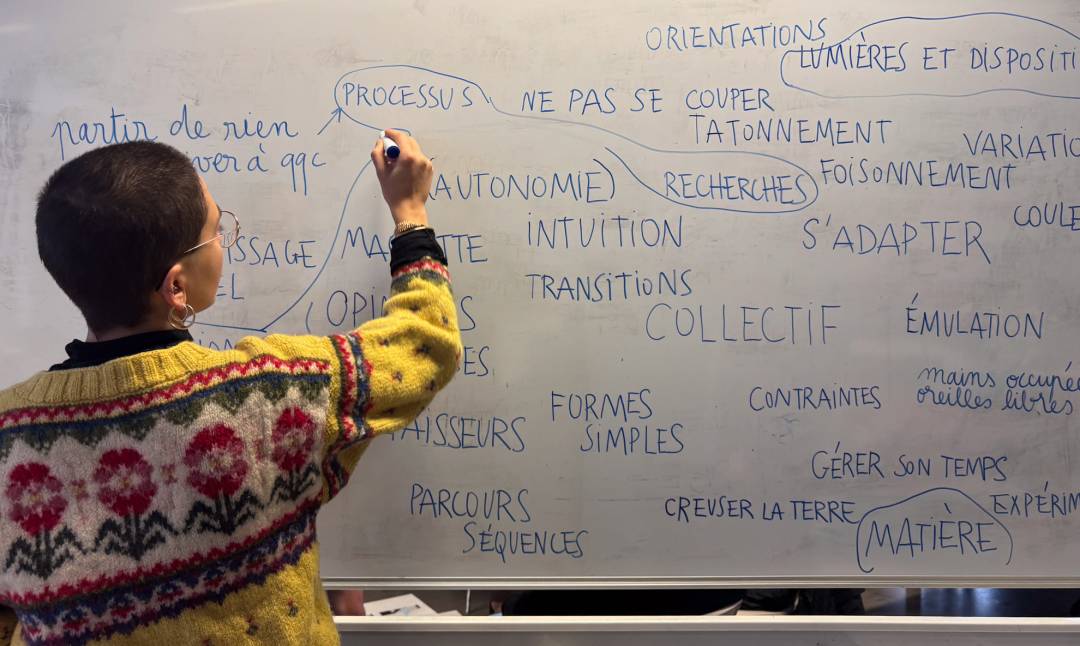 ORIENTATIONS
LUMIÈRES ET DISPOSITI
PROCESSUS
NE PAS SE COUPER
TATONNEMENT
VARIATIO
partir de rien
ver à qqc
(AUTONOMIE)
RECHERCHES
FOISONNEMENT
COULE
SSAGE
EL
MA TTE
INTUITION
S'ADAPTER
TRANSITIONS
(OPI S
COLLECTIF
ÉMULATION
ES
mains occupée
oreilles libres
CONTRAINTES
FORMES
SIMPLES
AISSEURS
GÉRER SON TEMPS
PARCOURS
SÉQUENCES
CREUSER LA TERRE
MATIÈRE
EXPÉRIM